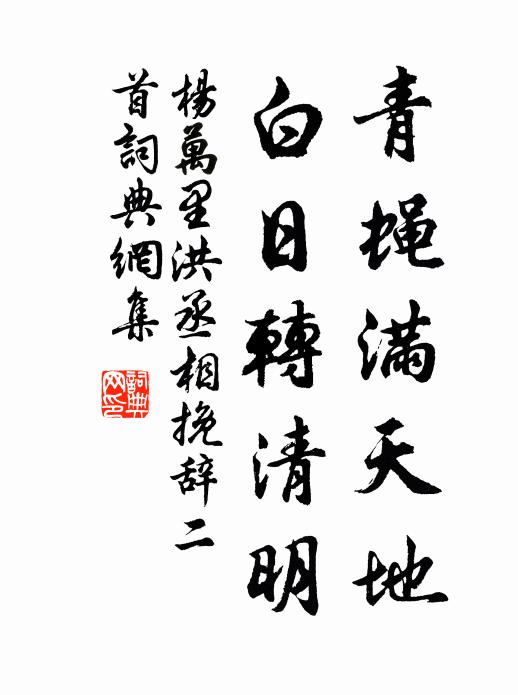 青蝇满天地
白日轉清明
楊萬里洪丞相挽辞二
首詞典網集
詞典
网印